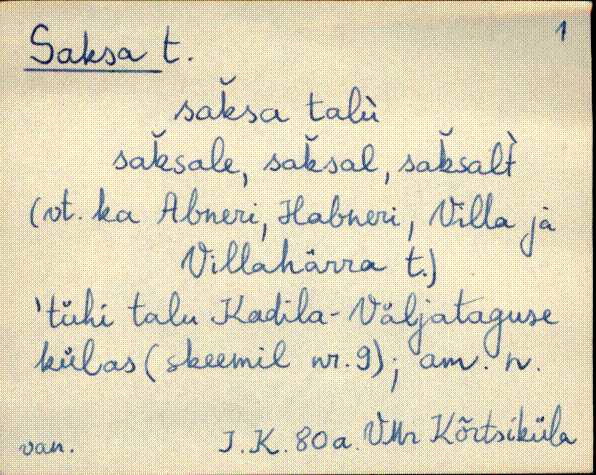 1
Saksa t.
sak̆sa talù
sak̆sale, sak̆sal, sak̆salt̀
(vt. ka Abneri, Habneri, Villa ja
Villahärra t.)
'tühi talu Kadila-Väljataguse
külas (skeemil nr. 9); am. n.
van. J.K. 80 a. VMr Kõrtsiküla